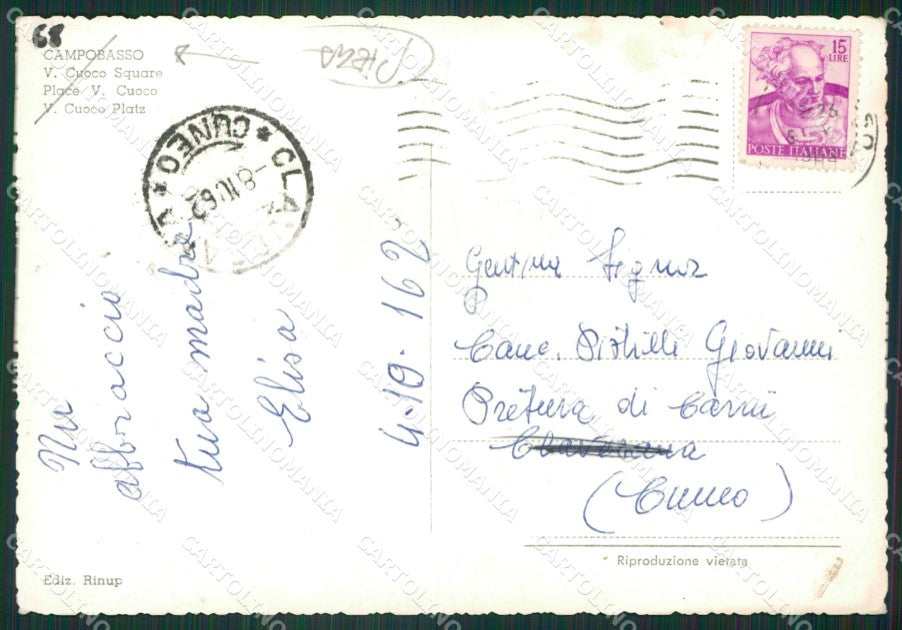 68
CAMPOBASSO
V. Cuoco Square
Place V. Cuoco
V. Cuoco Platz
PIEGA
15
LIRE
POSTE ITALIANE
CUNEO
8 IV 62
Un
abbraccio
tua madre
Elisa
4-19-162
Gent.ma Signor
Canc. Pistilli Giovanni
Pretura di Carrù
Clavesana
(Cuneo)
Riproduzione vietata
Ediz. Rinup
CARTOLINOMANIA